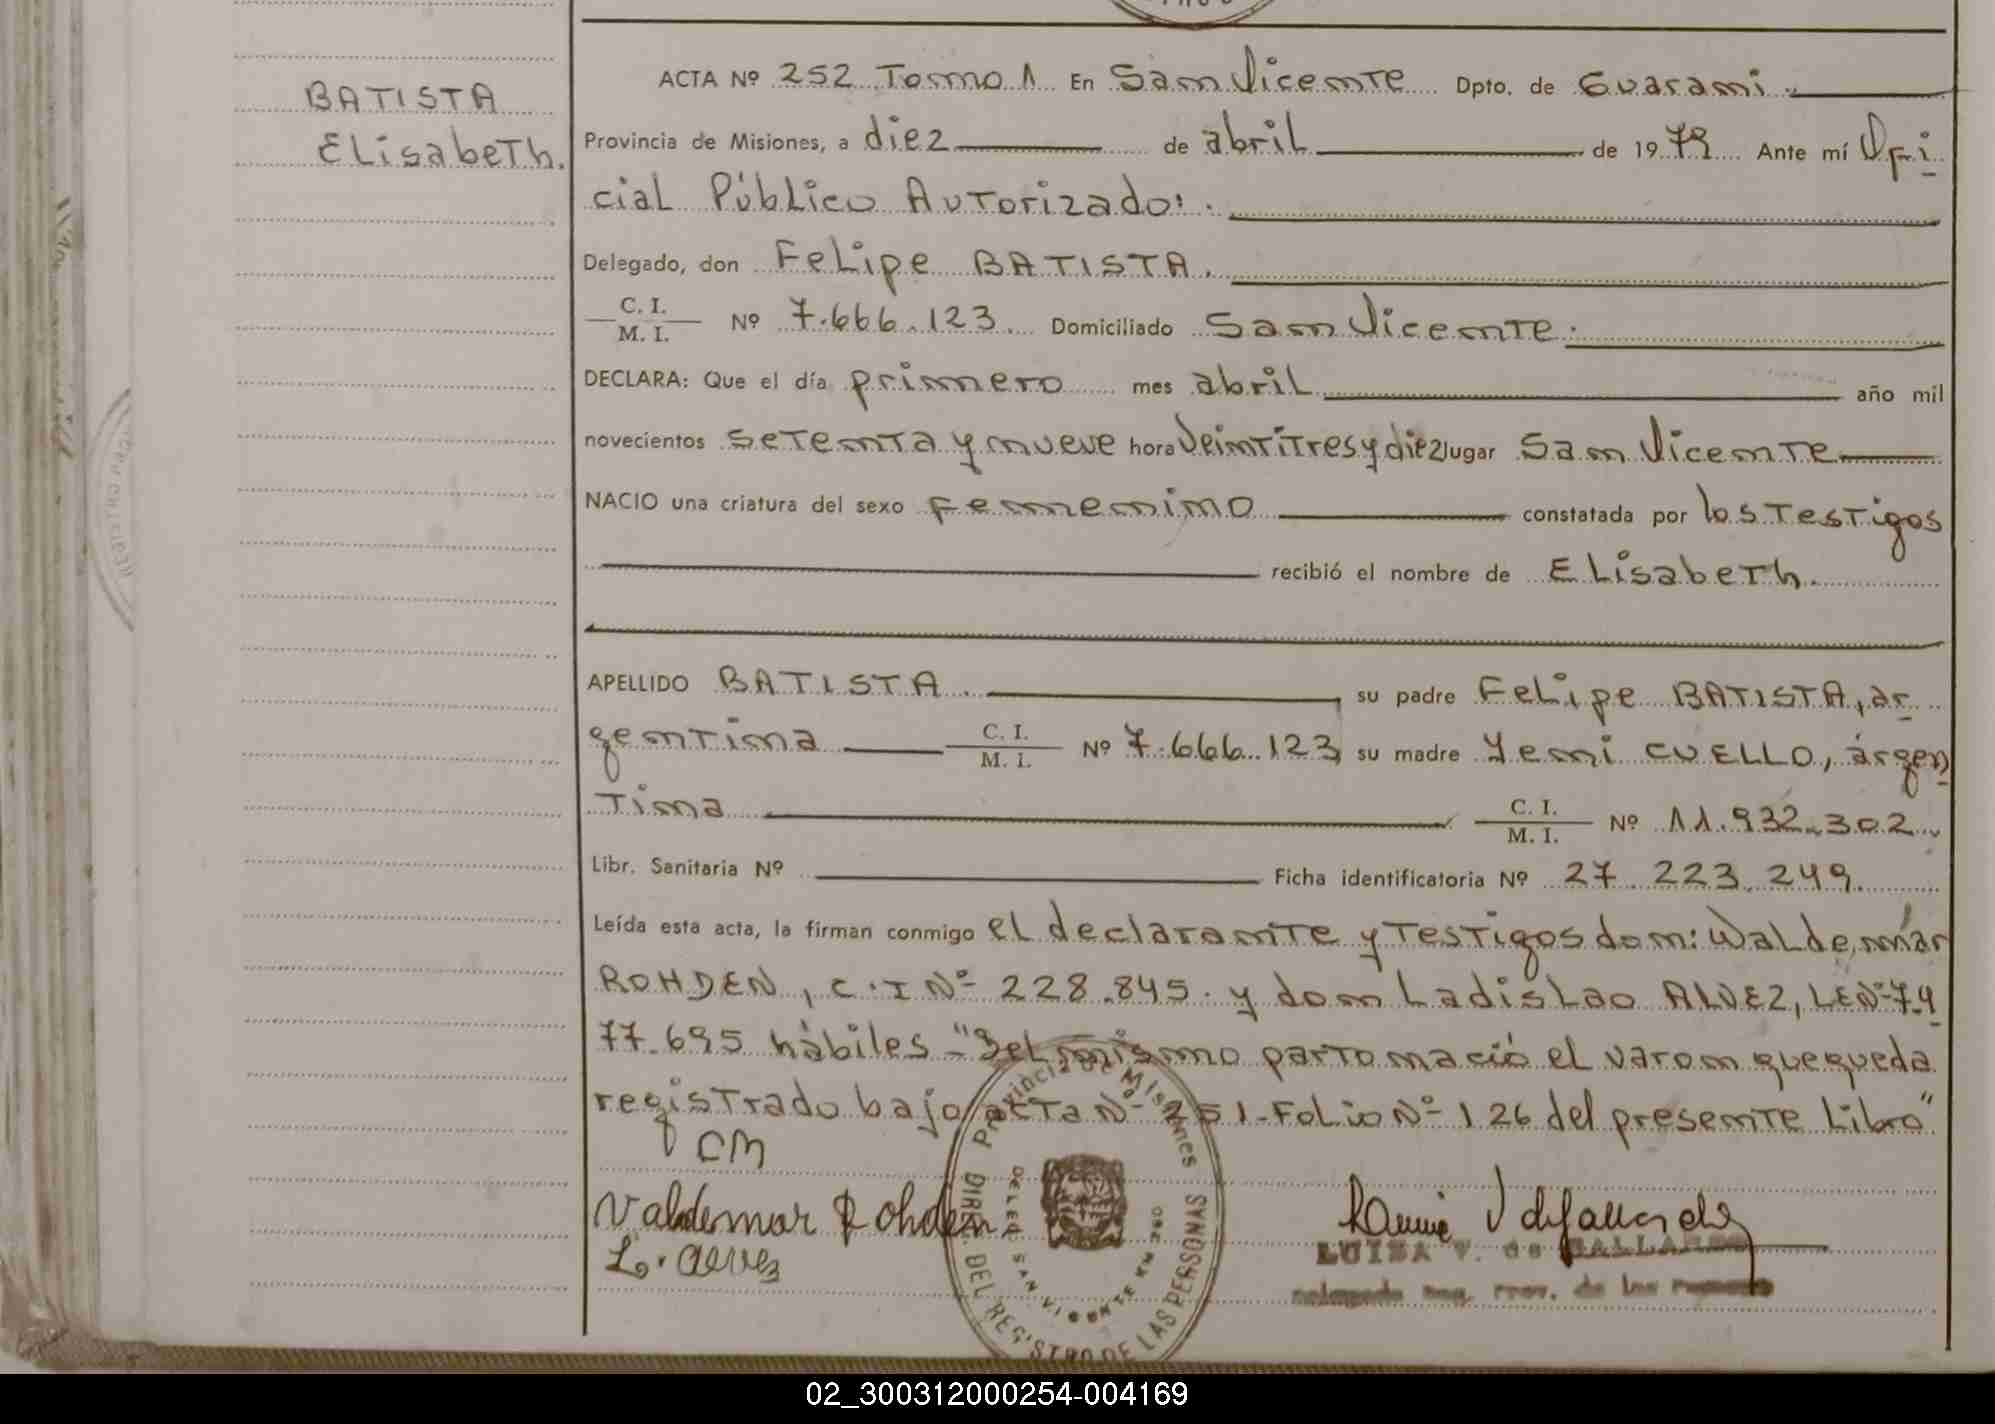 BATISTA
Elisabeth.
ACTA Nº 252 Tomo 1 En San Vicente Dpto. de Guarani
Provincia de Misiones, a diez de abril de 1979 Ante mí Ofi
cial Público Autorizado:
Delegado, don Felipe BATISTA.
C. I.
M. I. Nº 7.666.123 Domiciliado San Vicente.
DECLARA: Que el día primero mes abril año mil
novecientos setenta y nueve hora Veintitres y diez lugar San Vicente
NACIO una criatura del sexo femenino constatada por los Testigos
recibió el nombre de Elisabeth.
APELLIDO BATISTA su padre Felipe BATISTA, ar
gentina C. I. M. I. Nº 7.666.123 su madre Yeni CUELLO, argen
tina C. I. M. I. Nº 11.932.302
Libr. Sanitaria Nº Ficha identificatoria Nº 27.223.249.
Leída esta acta, la firman conmigo el declarante y Testigos don: Waldemar
ROHDEN, C.I Nº 228.845. y don Ladislao ALVEZ, LE Nº 7.4
77.695 hábiles "Del mismo parto nació el varon que queda
registrado bajo acta Nº 251-Folio Nº 126 del presente Libro"
CM
Valdemar Rohden
L. alvez
LUISA V. de GALLARDO
Delegada Reg. Prov. de las Personas
Provincia de Misiones
DIREC. DEL REGISTRO DE LAS PERSONAS
DELEG. SAN VICENTE
02_300312000254-004169